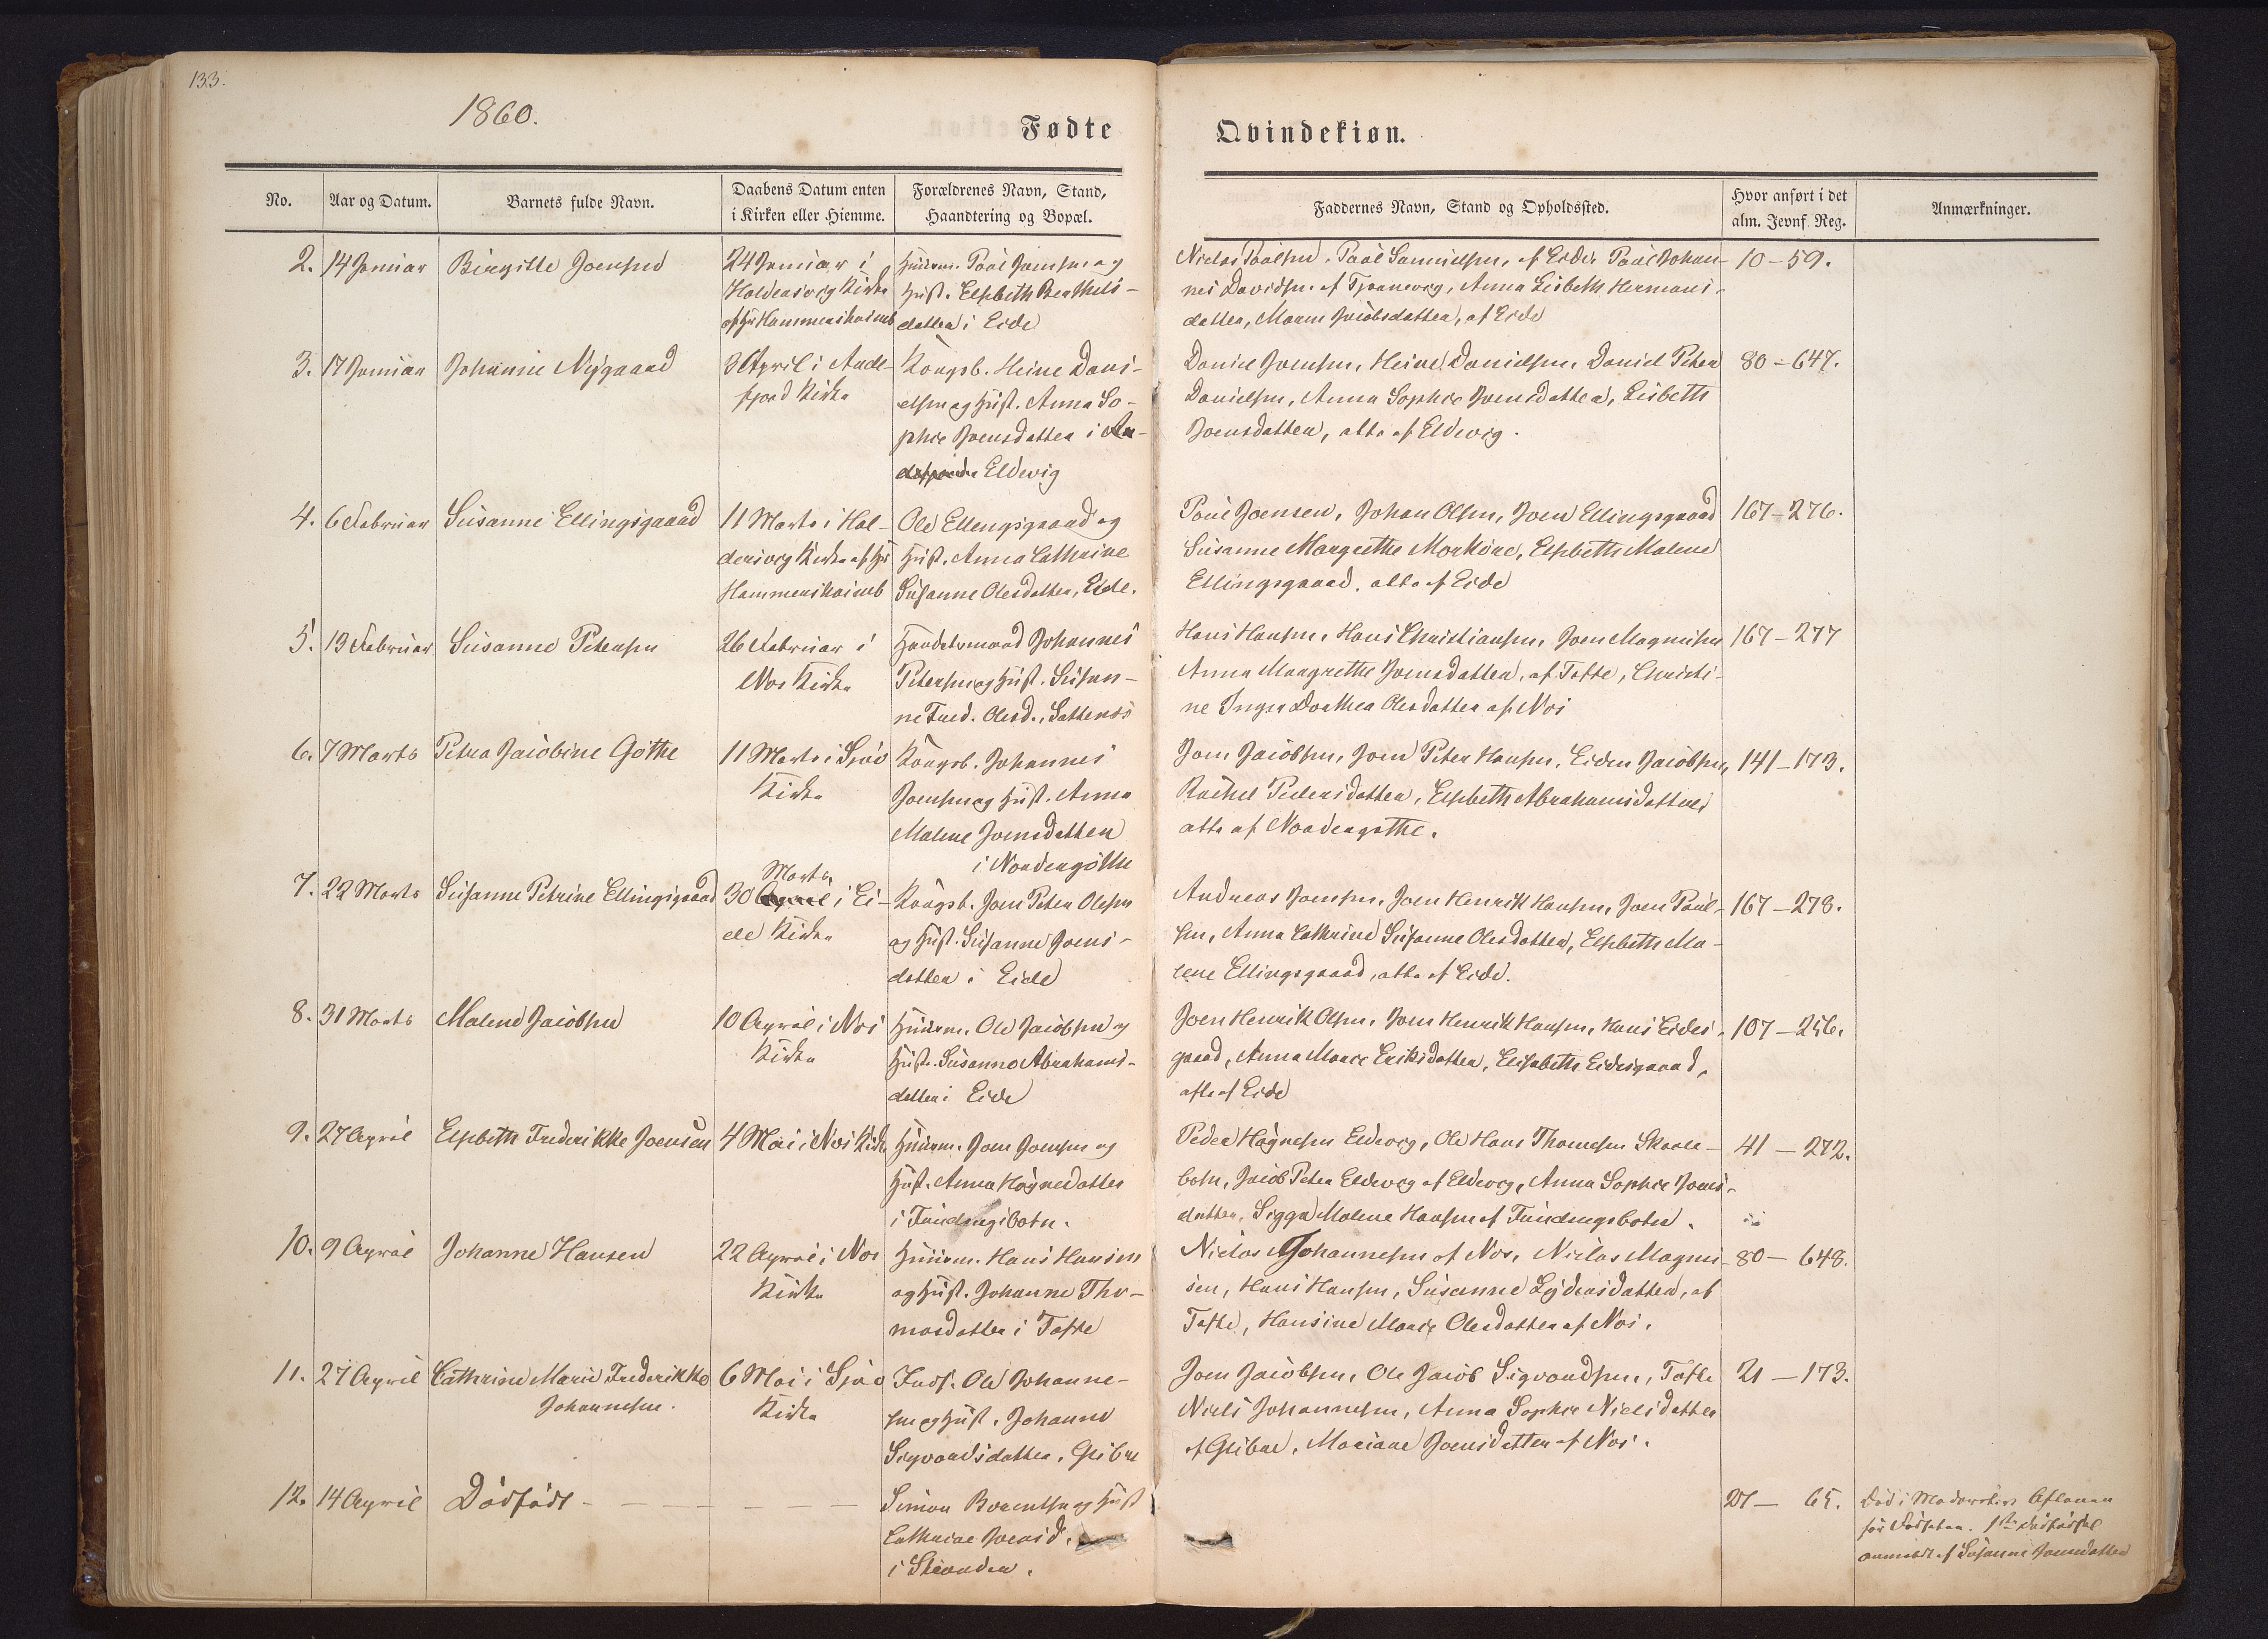 133.
1860.
Fødte
Qvindekiøn.
No.
Aar og Datum.
Barnets fulde Navn.
Daabens Datum enten
i Kirken eller Hiemme.
Forældrenes Navn, Stand,
Haandtering og Bopæl.
Faddernes Navn, Stand og Opholdssted.
Hvor anført i det
alm. Jevnf. Reg.
Anmærkninger.
2. 14 Januar
Birgitte Joensen
24 Januar i
Haldersvig Kirke
af Hr Hammershaimb
Huusm. Poul Joensen og
Hust. Elsbeth Berthels-
datter i Eide
Niclas Poulsen, Poul Samuelsen, af Eide, Poul Johan-
nes Davidsen af Tjørnevig, Anna Lisbeth Hermans-
datter, Maren Jacobsdatter, af Eide
10 - 59.
3. 17 Januar
Johanne Nÿgaard
3 April i Ande-
fjord Kirke
Kongsb. Heine Dani-
elsen og Hust. Anna So-
phie Joensdatter i An-
Eldevig
Daniel Joensen, Heine Danielsen, Daniel Peter
Danielsen, Anna Sophie Joensdatter, Lisbeth
Joensdatter, alle af Eldevig.
80 - 647.
4. 6 Februar
Susanne Ellingsgaard
11 Marts i Hal-
dersvig Kirke af Hr
Hammershaimb
Ole Ellingsgaard og
Hust. Anna Cathrine
Susanne Olesdatter, Eide.
Poul Joensen, Johan Olsen, Joen Ellingsgaard
Susanne Margrethe Morköre, Elsbeth Malene
Ellingsgaard, alle af Eide
167 - 276.
5. 19 Februar
Susanne Petersen
26 Februar i
Nes Kirke
Handelsmand Johannes
Petersen og Hust. Susan-
ne Fred. Olesd., Saltenes
Hans Hansen, Hans Christiansen, Joen Magnusen
Anna Margrethe Joensdatter, af Tofte, Christi-
ne Inger Dorthea Olesdatter af Nes
167 - 277
6. 7 Marts
Petra Jacobine Gøthe
11 Marts i Sjov
Kirke
Kongsb. Johannes
Joensen og Hust. Anna
Malene Joensdatter
i Nordergøthe
Joen Jacobsen, Joen Peter Hansen, Eiden Jacobsen,
Rachel Pedersdatter, Elsbeth Abrahamsdatter
alle af Nordergøthe.
141 - 173.
7. 22 Marts
Susanne Petrine Ellingsgaard
Marts
30 April i Ei-
de Kirke
Kongsb. Joen Peter Olesen
og Hust. Susanne Joens-
datter i Eide
Andreas Joensen, Joen Henrik Hansen, Joen Poul-
sen, Anna Cathrine Susanne Olesdatter, Elsbeth Ma-
lene Ellingsgaard, alle af Eide.
167 - 278.
8. 31 Marts
Malene Jacobsen
10 April i Nes
Kirke
Huusm. Ole Jacobsen og
Hust. Susanne Abrahams-
datter i Eide
Joen Henrik Olsen, Joen Henrik Hansen, Hans Eides-
gaard, Anna Marie Eriksdatter, Elisabeth Eidesgaard,
alle af Eide
107 - 256.
9. 27 April
Elsbeth Frederikke Joensen
4 Mai i Nes Kirke
Huusm. Joen Joensen og
Hust. Anna Høgnedatter
i Fundingsbotn.
Peder Høgnesen Eldevig, Ole Hans Thomesen Skaale-
botn, Jacob Peter Eldevig af Eldevig, Anna Sophie Joens-
datter, Sigga Malene Hansen af Fundingsbotn.
41 - 272.
10. 9 April
Johanne Hansen
22 April i Nes
Kirke
Huusm. Hans Hansen
og Hust. Johanne Tho-
masdatter i Tofte
Niclas Johannesen af Nes, Niclas Magnu-
sen, Hans Hansen, Susanne Lÿdersdatter, af
Tofte, Hansine Marie Olesdatter af Nes.
80 - 648.
11. 27 April
Cathrine Marie Frederikke
Johannesen.
6 Mai i Sjov
Kirke
Inds. Ole Johanne-
sen og Hust. Johanne
Sigvardsdatter, Glibre
Joen Jacobsen, Ole Jacob Sigvardsen, Tofte
Niels Johannesen, Anna Sophie Nielsdatter
af Glibre, Mariane Joensdatter af Nes.
21 - 173.
12. 14 April
Dødfødt - - - - -
Simon Berentsen og Hust
Cathrine Joensd.
i Strender.
27 - 65.
Død i Moders Liv
før Fødselen.
anmeldt af Susanne Joensdatter